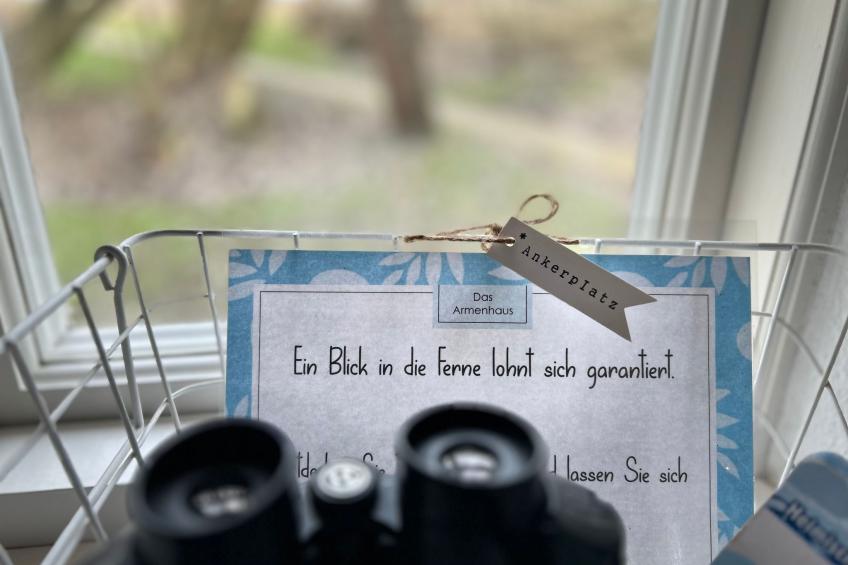 *Ankerplatz
Das
Armenhaus
Ein Blick in die Ferne lohnt sich garantiert.
Sie lassen Sie sich